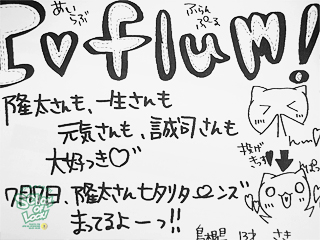 あいらぶ
ふらんぷーる
I♥flumpool!
隆太さんも、一生さんも
元気さんも、誠司さんも
大好っき♡
投げきっす
ぱっ
7月7日、隆太さん七夕リターンズ
まってるよーっ!!
島根県 13才 さき